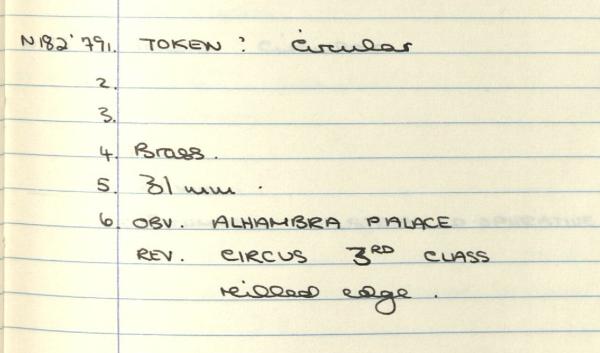 N182'791. TOKEN : circular
2.
3.
4. Brass.
5. 31 mm.
6. OBV. ALHAMBRA PALACE
REV. CIRCUS 3RD CLASS
milled edge.